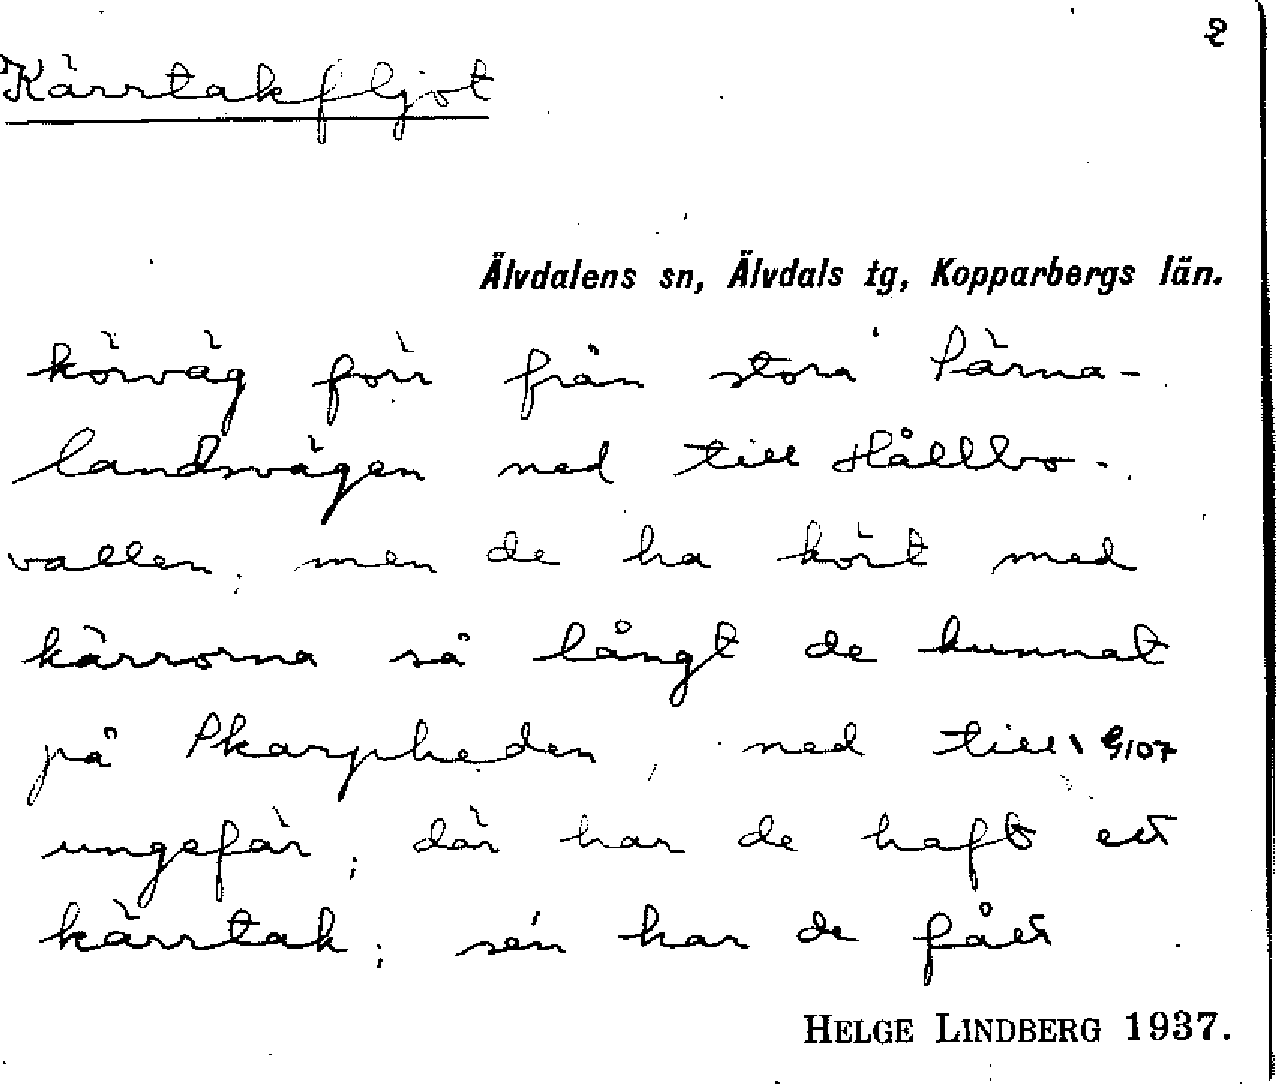 2
Kärrtakfljot
Älvdalens sn, Älvdals tg, Kopparbergs län.
körväg förr från stora Särna-
landsvägen ned till Hållbo-
vallen; men de ha kört med
kärrorna så långt de kunnat
på Skarpheden, ned till G107
ungefär; där har de haft ett
kärrtak; sén har de fått
HELGE LINDBERG 1937.